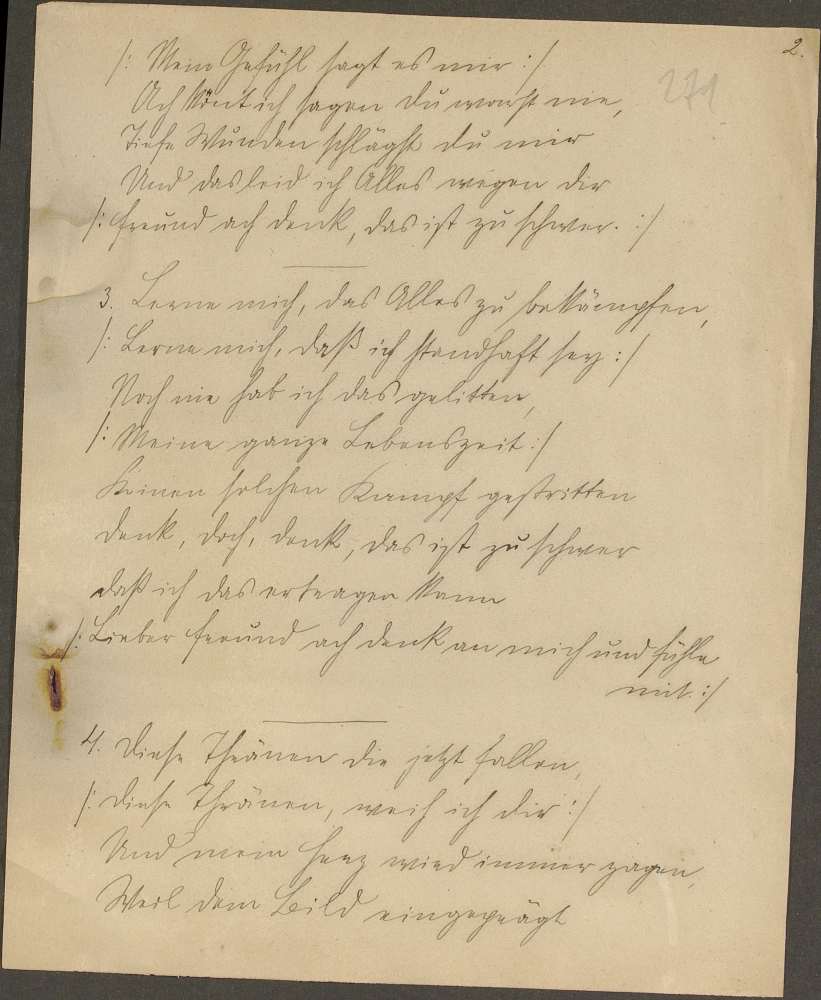 2.
/: Mein Gefühl sagt es mir :/
271
Ach könnt ich sagen du warst nie,
Tiefe Wunden schlägst du mir
Und das leid ich Alles wegen dir
/: Freund ach denk, das ist zu schwer. :/
3. Lerne mich, das Alles zu bekämpfen,
/: Lerne mich, daß ich standhaft sey :/
Noch nie hab ich das gelitten,
/: Meine ganze Lebenszeit :/
Keinen solchen Kampf gestritten
denk, doch, denk, das ist zu schwer
daß ich das ertragen kann
/: Lieber Freund ach denk an mich und fühle
mit :/
4. Diese Thränen die jetzt fallen,
/: Diese Thränen, weih ich dir :/
Und mein Herz wird immer zagen,
Weil dein Bild eingeprägt